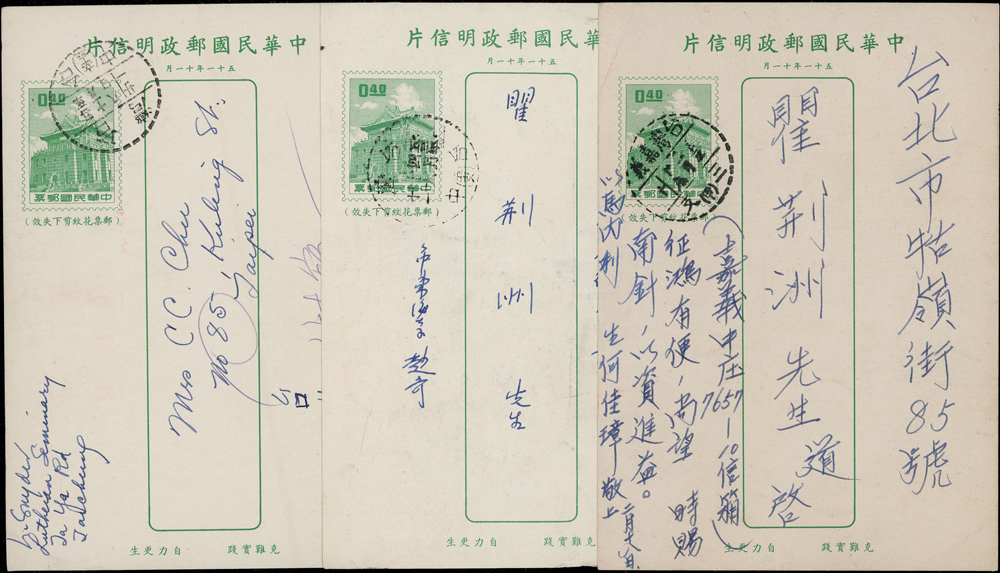 片信明政郵國民華中
月一十年一十五
0.40
票郵國民華中
（效失下剪紋花票郵）
Mrs C.C. Chu
No 85, Kuling St.,
Taipei
L. Snyder
Lutheran Seminary
Ta Ya Rd
Taichung
生更力自 踐實難克
片信明政郵國民華中
月一十年一十五
0.40
票郵國民華中
（效失下剪紋花票郵）
瞿 荆 州 先生
生更力自 踐實難克
片信明政郵國民華中
月一十年一十五
0.40
票郵國民華
（效失下剪紋花票郵）
台北市牯嶺街85號
瞿荆洲先生 道啓
嘉義中庄7657－10信箱
征鴻有便，尚望 時賜
南針，以資進益。
以馬内利 生何佳璋敬上
生更力自 踐實難克